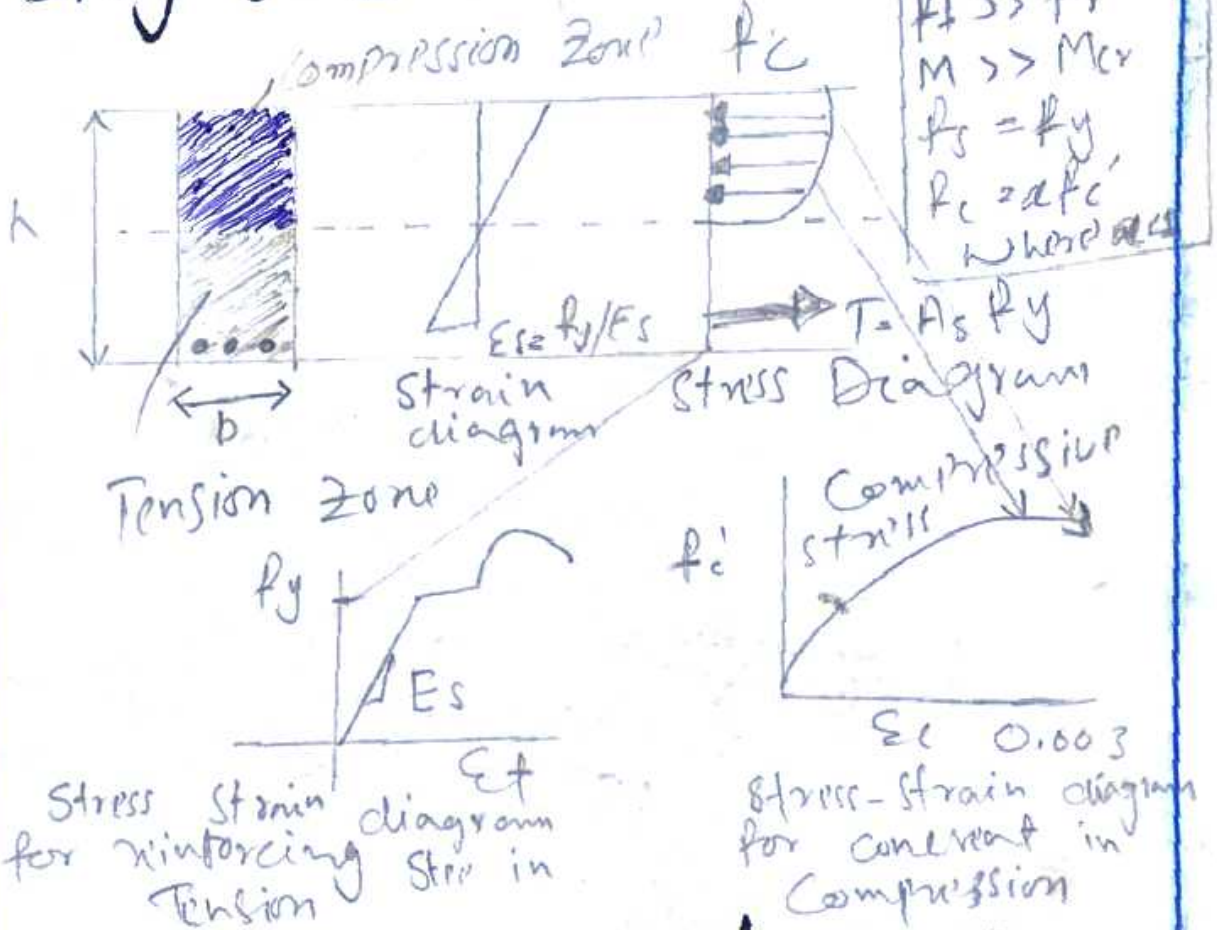 Compression Zone fc'
M >> Mcr
fs = fy
fc = αfc'
where
h
b
εs= fy/Es
T= As fy
Strain
diagram
Stress Diagram
Tension Zone
Compressive
stress
fy
Es
εt
fc'
εc 0.003
Stress Strain diagram
for rinforcing Stee in
Tension
Stress-Strain diagram
for concreat in
Compression